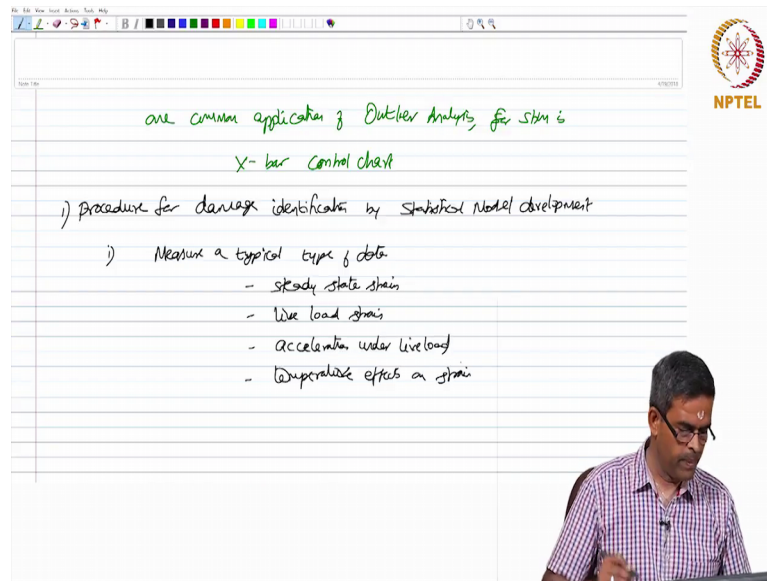 File Edit View Insert Actions Tools Help
B I
Note Title
4/19/2018
NPTEL
one common application of Outlier Analysis, for SHM is
X-bar control chart
1) procedure for damage identification by statistical Model development
i) Measure a typical type of data
- steady state strain
- live load strain
- acceleration under live load
- temperature effects on strain